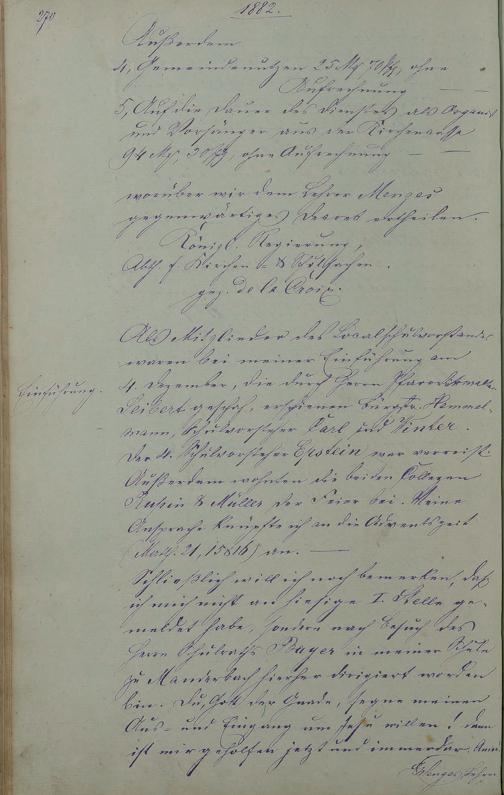 270
1882.
Außerdem
4, Gemeindenutzen 25 M 70 ₰, ohne
Aufrechnung
5, Auf die Dauer des Dienstes als Organist
und Vorsänger aus der Kirchencasse
94 M 30 ₰, ohne Aufrechnung
worüber wir dem Lehrer Menges
gegenwärtiges Decret ertheilen.
Königl. Regierung,
Abth. f. Kirchen- & Schulsachen.
gez. de la Croix.
Als Mitglieder des Localschulvorstandes
waren bei meiner Einführung am
Einführung.
4. Dezember, die durch Herrn Pfarrer
Leibert geschah, erschienen Bürgstr. Hemmel-
mann, Schulvorsteher Carl und Winter.
Der 4. Schulvorsteher Epstein war verreist.
Außerdem wohnten die beiden Collegen
Rubin & Müller der Feier bei. Meine
Ansprache knüpfte ich an die Adventszeit
(Math. 21, 15 & 16) an.
Schließlich will ich noch bemerken, daß
ich mich nicht an hiesige I. Stelle ge-
meldet habe, sondern nach Besuch des
Herrn Schulraths Bayer in meiner Schule
zu Manderbach hierher dirigiert worden
bin. Du, Gott der Gnade, segne meinen
Aus- und Eingang um Jesu willen! dann
ist mir geholfen jetzt und immerdar. Amen
Menges, Lehrer